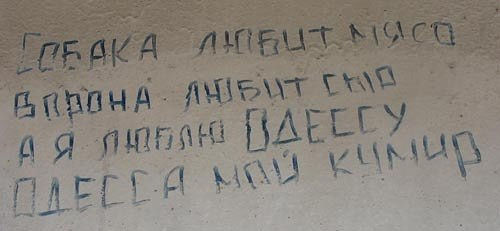 СОБАКА ЛЮБИТ МЯСО
ВОРОНА ЛЮБИТ СЫР
А Я ЛЮБЛЮ ОДЕССУ
ОДЕССА МОЙ КУМИР